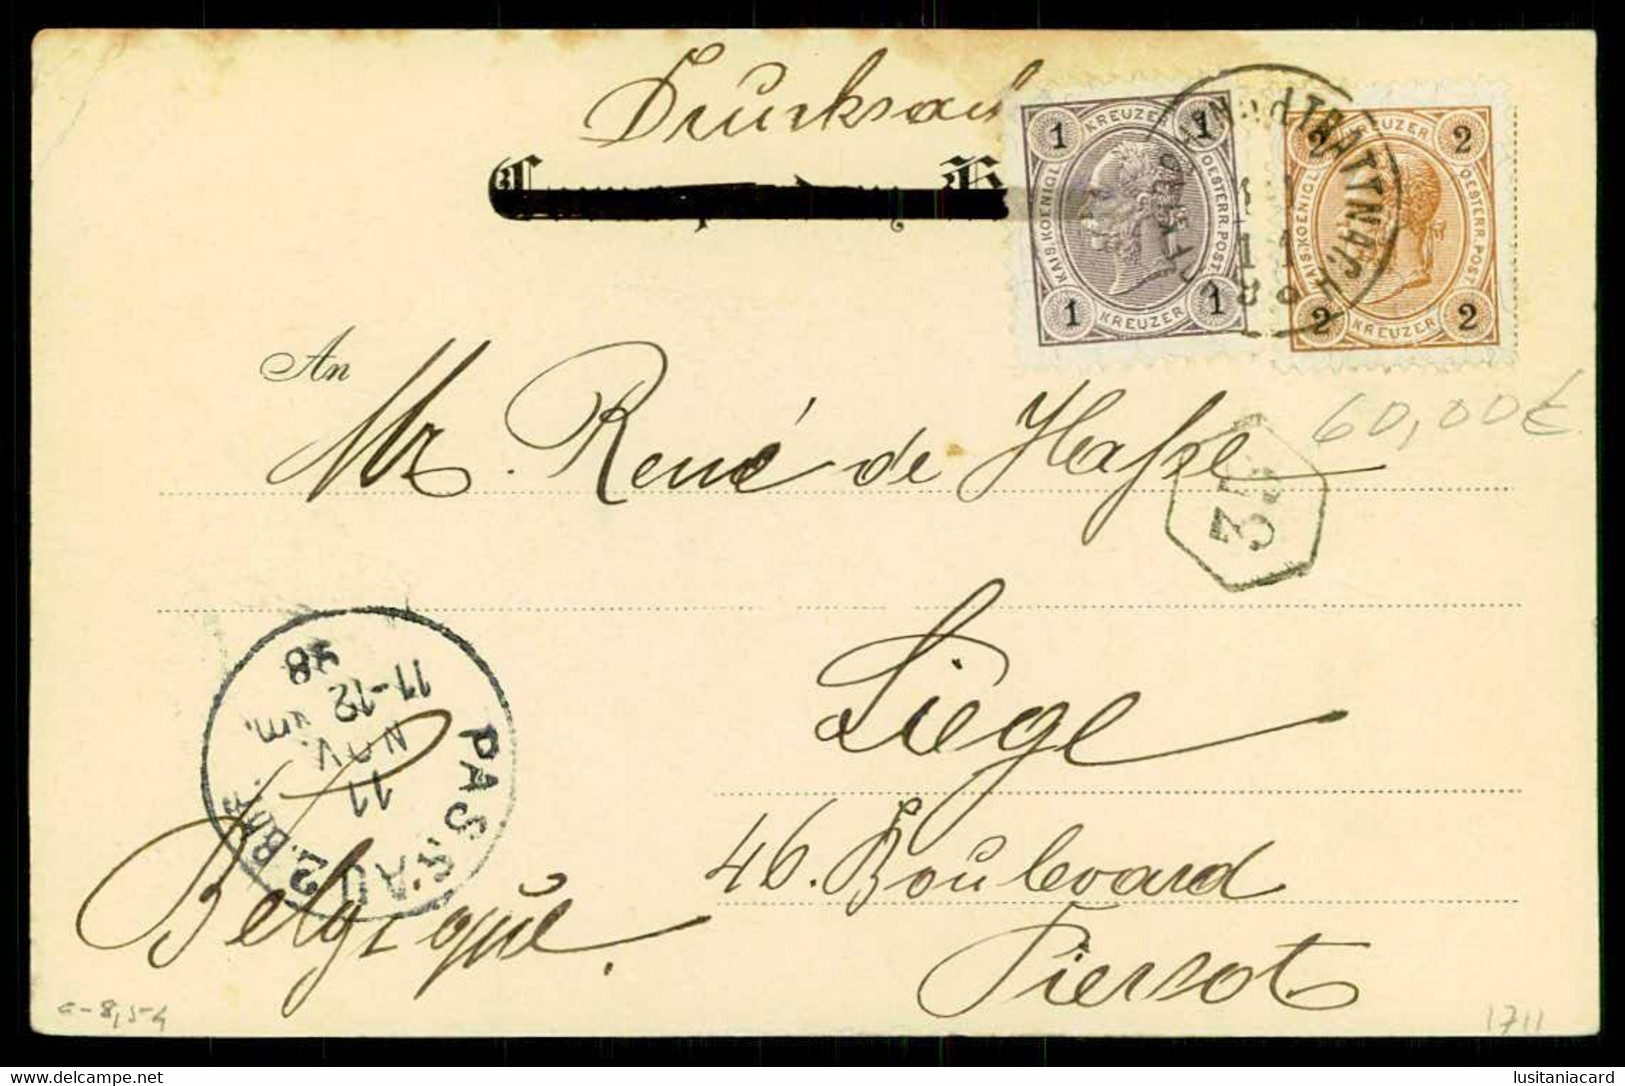 Drucksach
1 KREUZER 1
KAIS. KOENIGL. OESTERR. POST
1 KREUZER 1
2 KREUZER 2
KAIS. KOENIGL. OESTERR. POST
2 KREUZER 2
60,00€
An
Mr. René de Hasse
35
Liège
46. Boulevard
Piersot
Belgique.
PASSAU 2. BHF.
11
NOV.
11-12 Vm.
98
1711
lusitaniacard